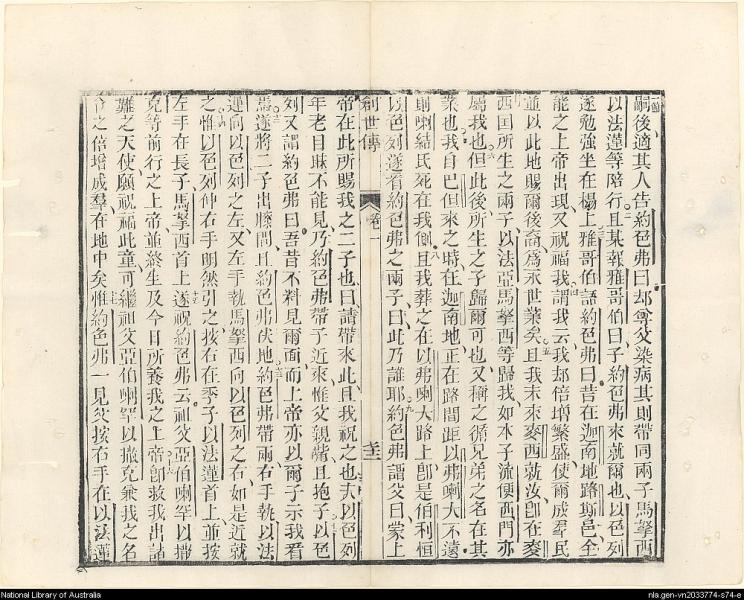 嗣後適其人告約色弗曰却尊父染病其則帶同兩子馬拏西
以法蓮等陪行且某報雅哥伯曰子約色弗來就爾也以色列
遂勉強坐在榻上雅哥伯謂約色弗曰昔在迦南地路斯邑全
能之上帝出現又祝福我謂我云我却倍增繁盛使爾成羣民
並以此地賜爾後裔為永世業矣且我未來麥西就汝即在麥
西国所生之兩子以法亞馬拏西等歸我如本子流便西門亦
屬我也但此後所生之子歸爾可也又稱之循兄弟之名在其
業也我自巴但來之時在迦南地正在路間距以弗喇大不遠
則喇結氏死在我側且我葬之在以弗喇大路上即是伯利恒
以色列遂看約色弗之兩子曰此乃誰耶約色弗謂父曰蒙上
創世傳 卷一
帝在此所賜我之二子也曰請帶來此且我祝之也夫以色列
年老目眯不能見乃約色弗帶子近來惟父親藉且抱子以色
列又謂約色弗曰吾昔不料見爾面而上帝亦以爾子示我看
焉遂將二子出膝間且約色弗伏地約色弗帶兩右手執以法
蓮向以色列之左又左手執馬拏西向以色列之右如是近就
之惟以色列伸右手明然引之按右在季子以法蓮首上並按
左手在長子馬拏西首上遂祝約色弗云祖父亞伯喇罕以撒
克等前行之上帝並終生及今日所養我之上帝即救我出諸
難之天使願祝福此童可繼祖父亞伯喇罕以撒克兼我之名
令之倍增成羣在地中矣惟約色弗一見父按右手在以法蓮
National Library of Australia
nla.gen-vn2033774-s74-e